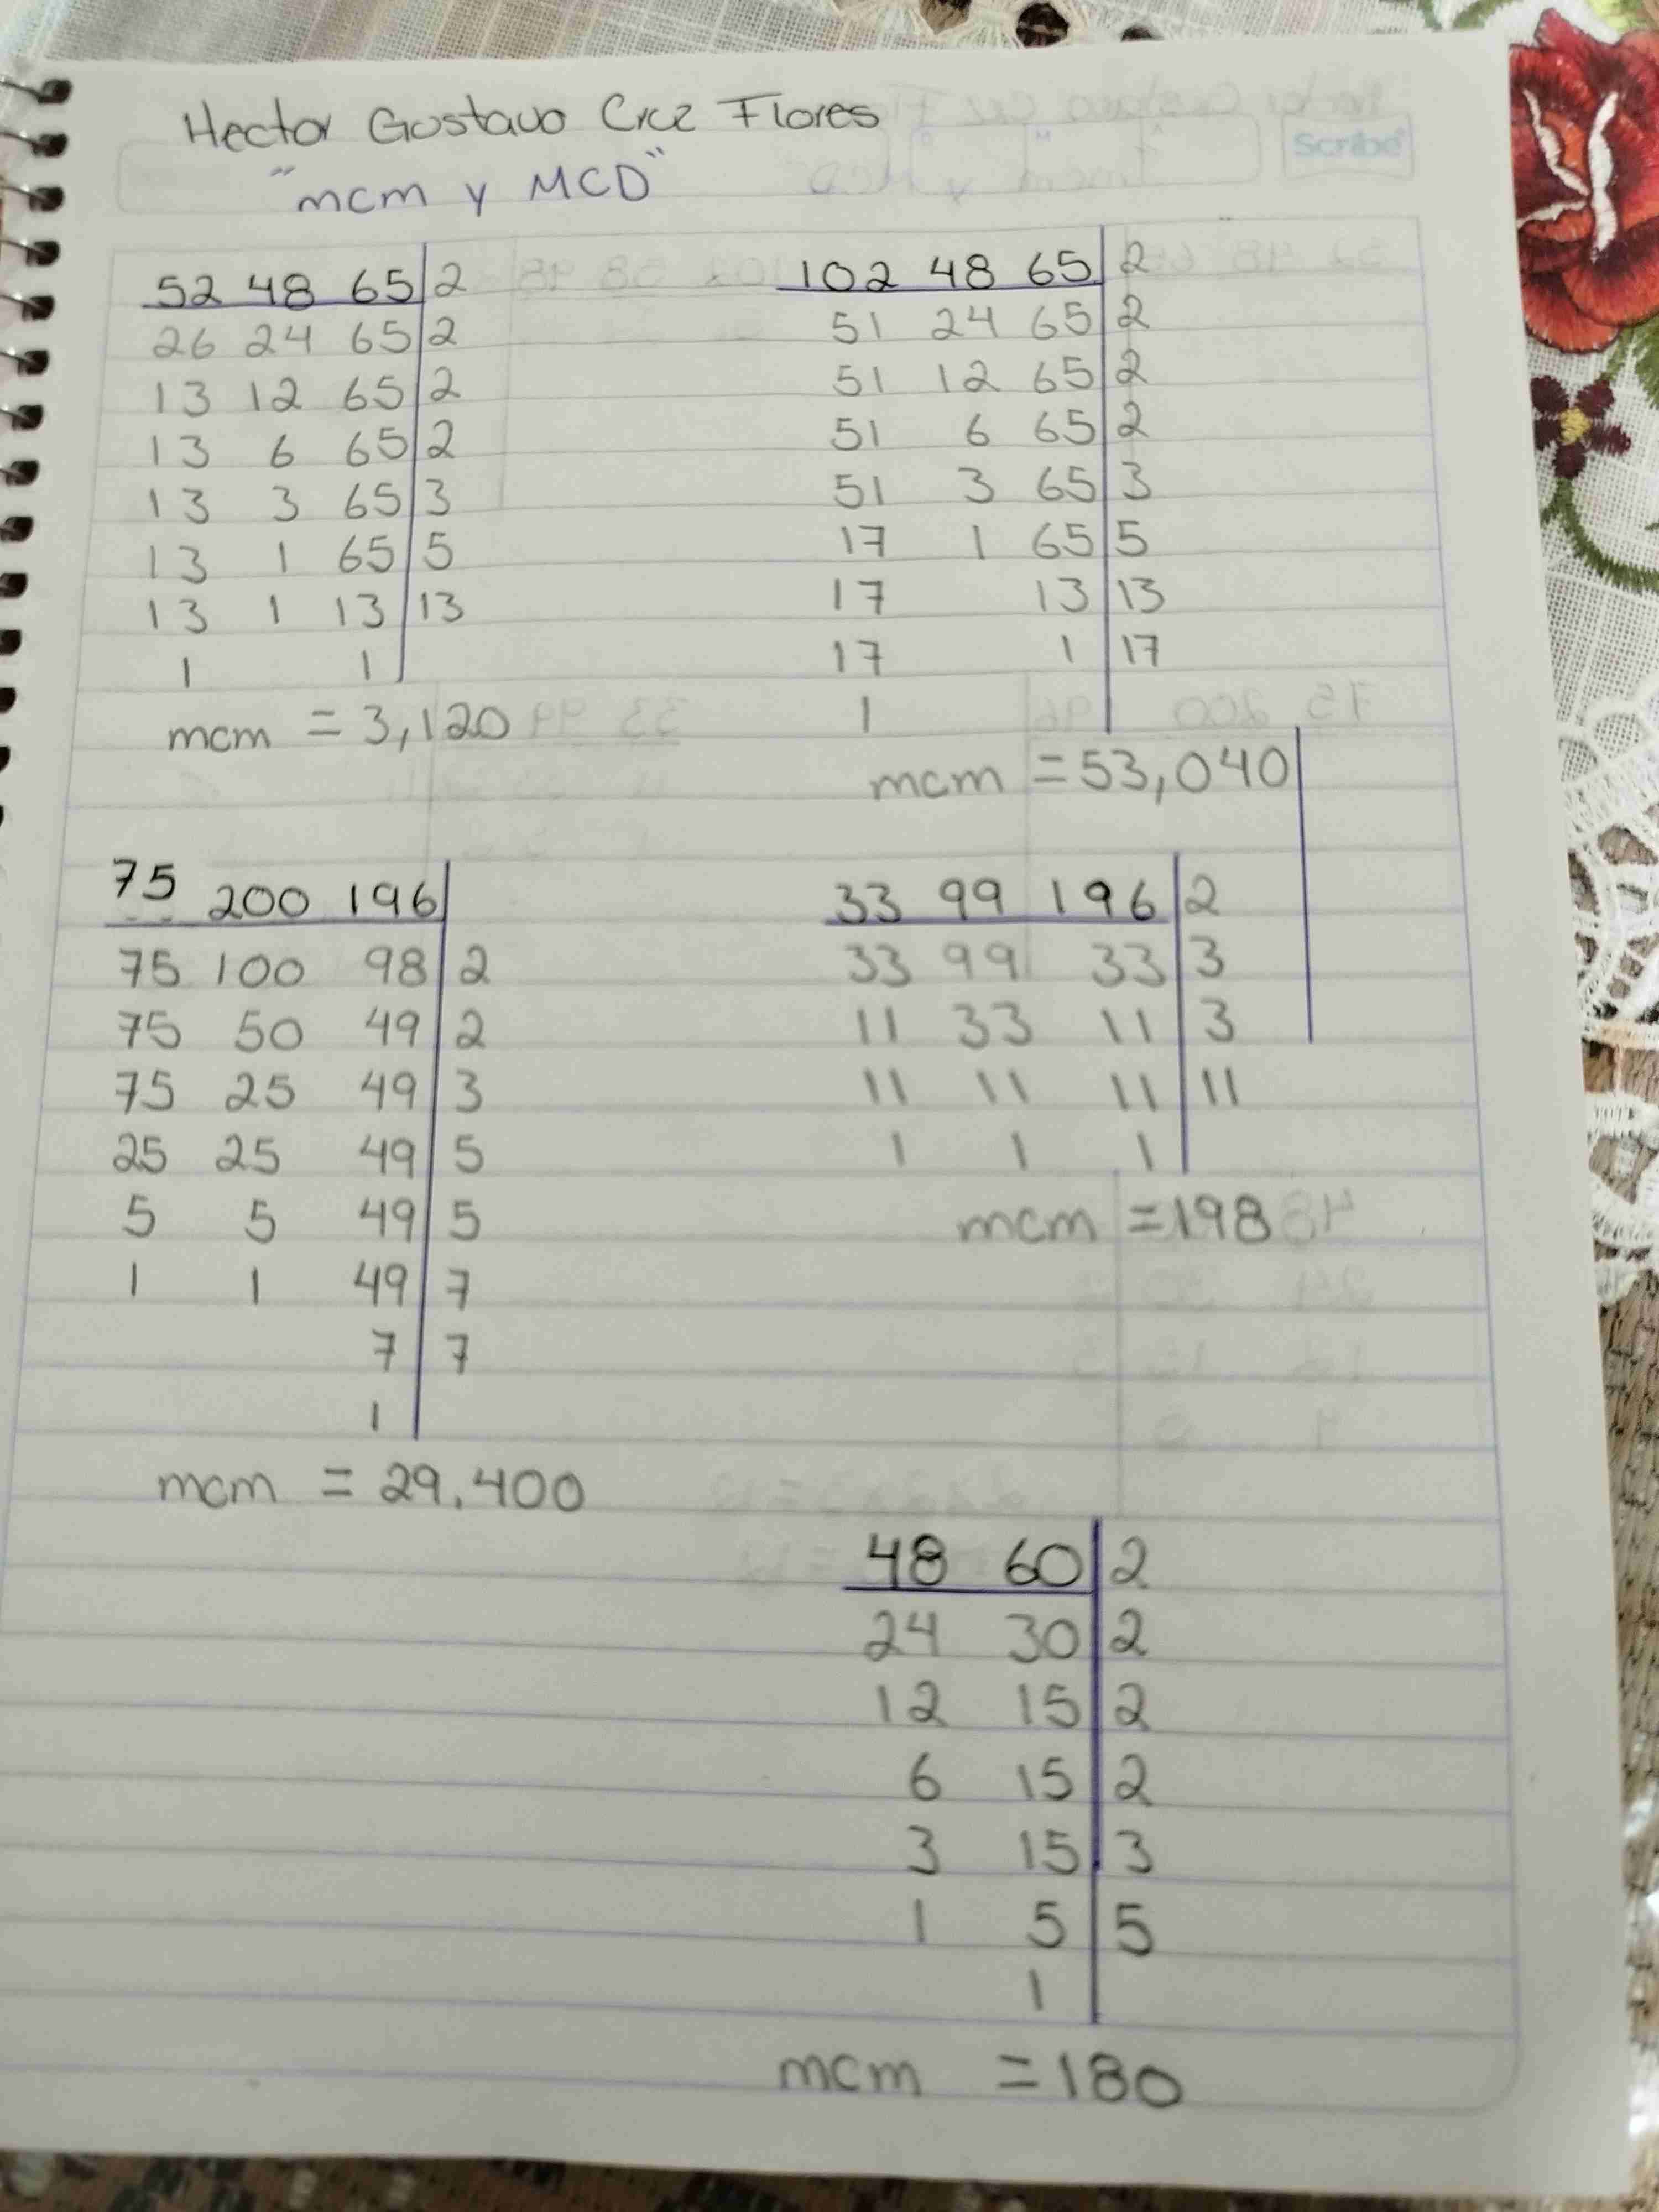 Hector Gustavo Cruz Flores
"mcm y MCD"
Scribe
52 48 65 2
26 24 65 2
13 12 65 2
13 6 65 2
13 3 65 3
13 1 65 5
13 1 13 13
1 1
mcm = 3,120
102 48 65 2
51 24 65 2
51 12 65 2
51 6 65 2
51 3 65 3
17 1 65 5
17 13 13
17 1 17
1
mcm = 53,040
75 200 196
75 100 98 2
75 50 49 2
75 25 49 3
25 25 49 5
5 5 49 5
1 1 49 7
7 7
1
mcm = 29.400
33 99 196 2
33 99 33 3
11 33 11 3
11 11 11 11
1 1 1
mcm = 198
48 60 2
24 30 2
12 15 2
6 15 2
3 15 3
1 5 5
1
mcm = 180